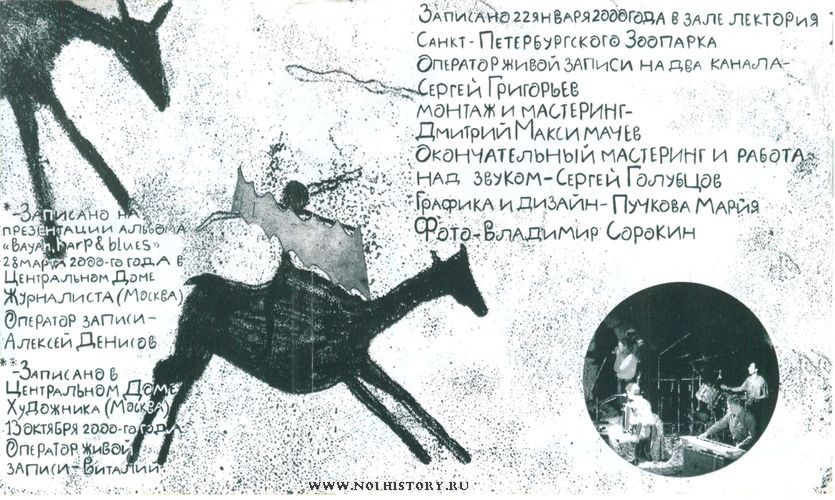 Записано 22 января 2000 года в зале лектория
Санкт-Петербургского Зоопарка
Оператор живой записи на два канала-
Сергей Григорьев
монтаж и мастеринг-
Дмитрий Максимачев
Окончательный мастеринг и работа
над звуком-Сергей Голубцов
Графика и дизайн-Пучкова Мария
Фото-Владимир Сорокин
*-Записано на
презентации альбома
«Bayan, harp & blues»
28 марта 2000-го года в
Центральном Доме
Журналиста (Москва)
Оператор записи-
Алексей Денисов
**-Записано в
Центральном Доме
Художника (Москва)
13 октября 2000-го года
Оператор живой
записи-Виталий
WWW.NOIHISTORY.RU